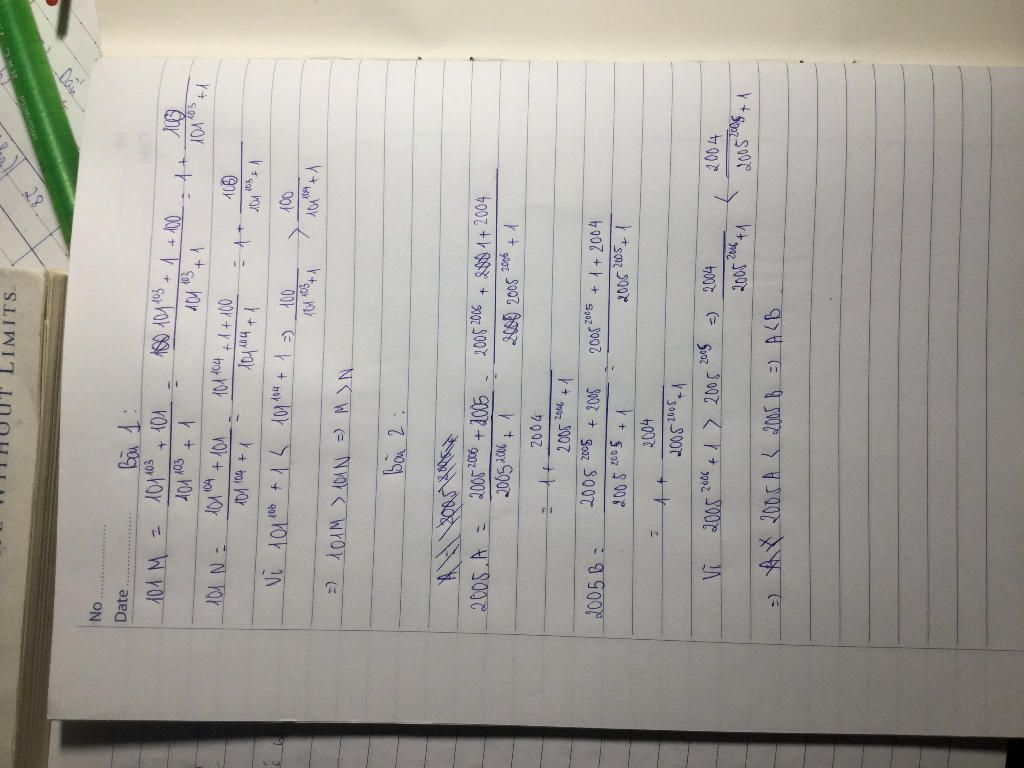 No
Date
Bài 1:
101 M = (101^103 + 101)/(101^103 + 1) = (101^103 + 1 + 100)/(101^103 + 1) = 1 + 100/(101^103 + 1)
101 N = (101^104 + 101)/(101^104 + 1) = (101^104 + 1 + 100)/(101^104 + 1) = 1 + 100/(101^103 + 1)
Vì 101^103 + 1 < 101^104 + 1 => 100/(101^103 + 1) > 100/(101^104 + 1)
=> 101M > 101N => M > N
Bài 2:
2005.A = (2005^2006 + 2005)/(2005^2006 + 1) = (2005^2006 + 1 + 2004)/(2005^2006 + 1)
= 1 + 2004/(2005^2006 + 1)
2005B = (2005^2005 + 2005)/(2005^2005 + 1) = (2005^2005 + 1 + 2004)/(2005^2005 + 1)
= 1 + 2004/(2005^2005 + 1)
Vì 2005^2006 + 1 > 2005^2005 => 2004/(2005^2006 + 1) < 2004/(2005^2005 + 1)
=> 2005A < 2005B => A < B
WITHOUT LIMITS
28